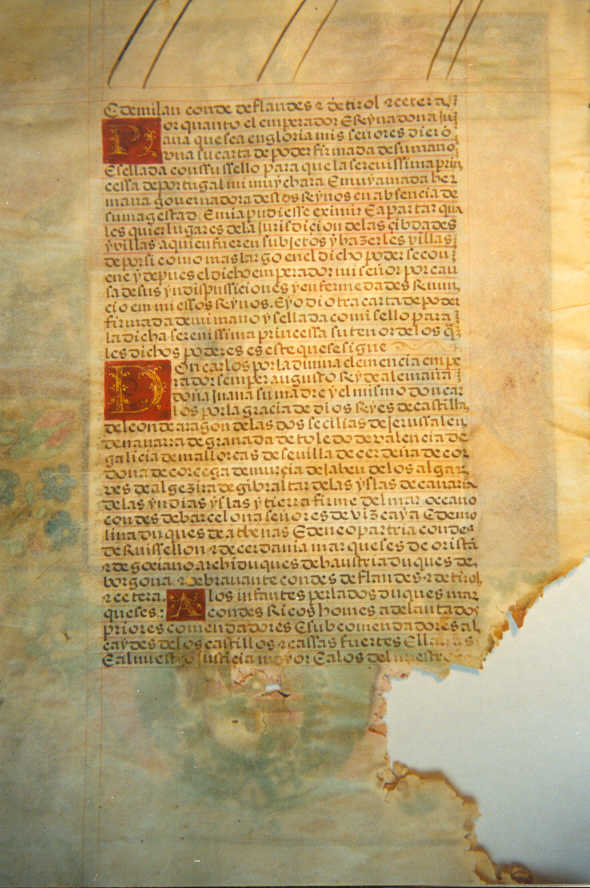 E de milan conde de flandes & de tirol & cetera
Por quanto el emperador E Reyna doña Ju
ana que sea en gloria mis señores diero
una su carta de poder firmada de su mano
E sellada con su sello para que la serenissima prin
cessa de portugal mi muy chara E muy amada her
mana governadora destos Reynos en absencia de
su magestad E mia pudiesse eximir E apartar qua
les quier lugares dela jurisdicion delas cibdades
y villas a quien fueren subjetos y hazerles villas
de por si como mas largo en el dicho poder se con
ene y depues el dicho emperador mi señor por cau
sa de sus yndispusiciones y enfermedades Renun
cio en mi essos Reynos. E yo di otra carta de poder
firmada de mi mano y sellada con mi sello para
la dicha serenissima princessa su tenor delos q
les dichos poderes es este que se sigue
Don carlos por la divina clemencia empe
rador semper augusto Rey de alemaña
doña Juana su madre y el mismo don car
los por la gracia de dios Reyes de castilla,
de leon de aragon delas dos secilias de jerusalen
de navarra de granada de toledo de valencia de
galicia de mallorcas de sevilla de cerdeña de cor
dova de corcega de murcia de Jahen delos algar
ves de algezira de gibraltar delas yslas de canaria
delas yndias yslas y tierra firme del mar oceano
condes de barcelona señores de vizcaya E de mo
lina duques de athenas E de neopartria condes
de Ruissellon & de cerdania marqueses de orista
& de gociano archiduques de haustria duques de
borgona & de bravante condes de flandes & de tirol
& cetera. A los infantes perlados duques mar
queses: condes Ricos homes adelantados
priores comendadores E subcomendadores al
caydes delos castillos & cassas fuertes E llanas
E al nuestro Justicia mayor E alos del nuestro